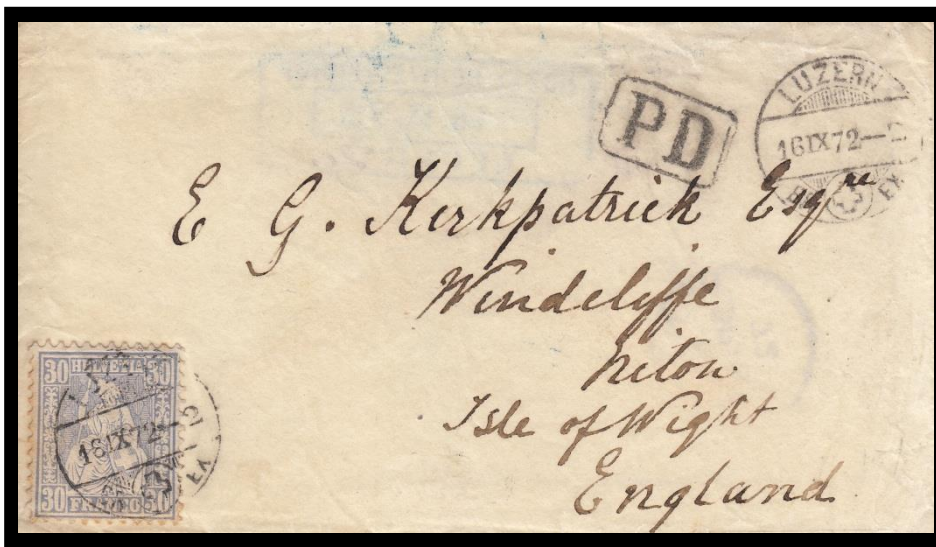 PD
LUZERN
16IX72
E G. Kirkpatrick Esqre
Windcliffe
Niton
Isle of Wight
England
30 HELVETIA 30
16IX72
30 FRANCO 30